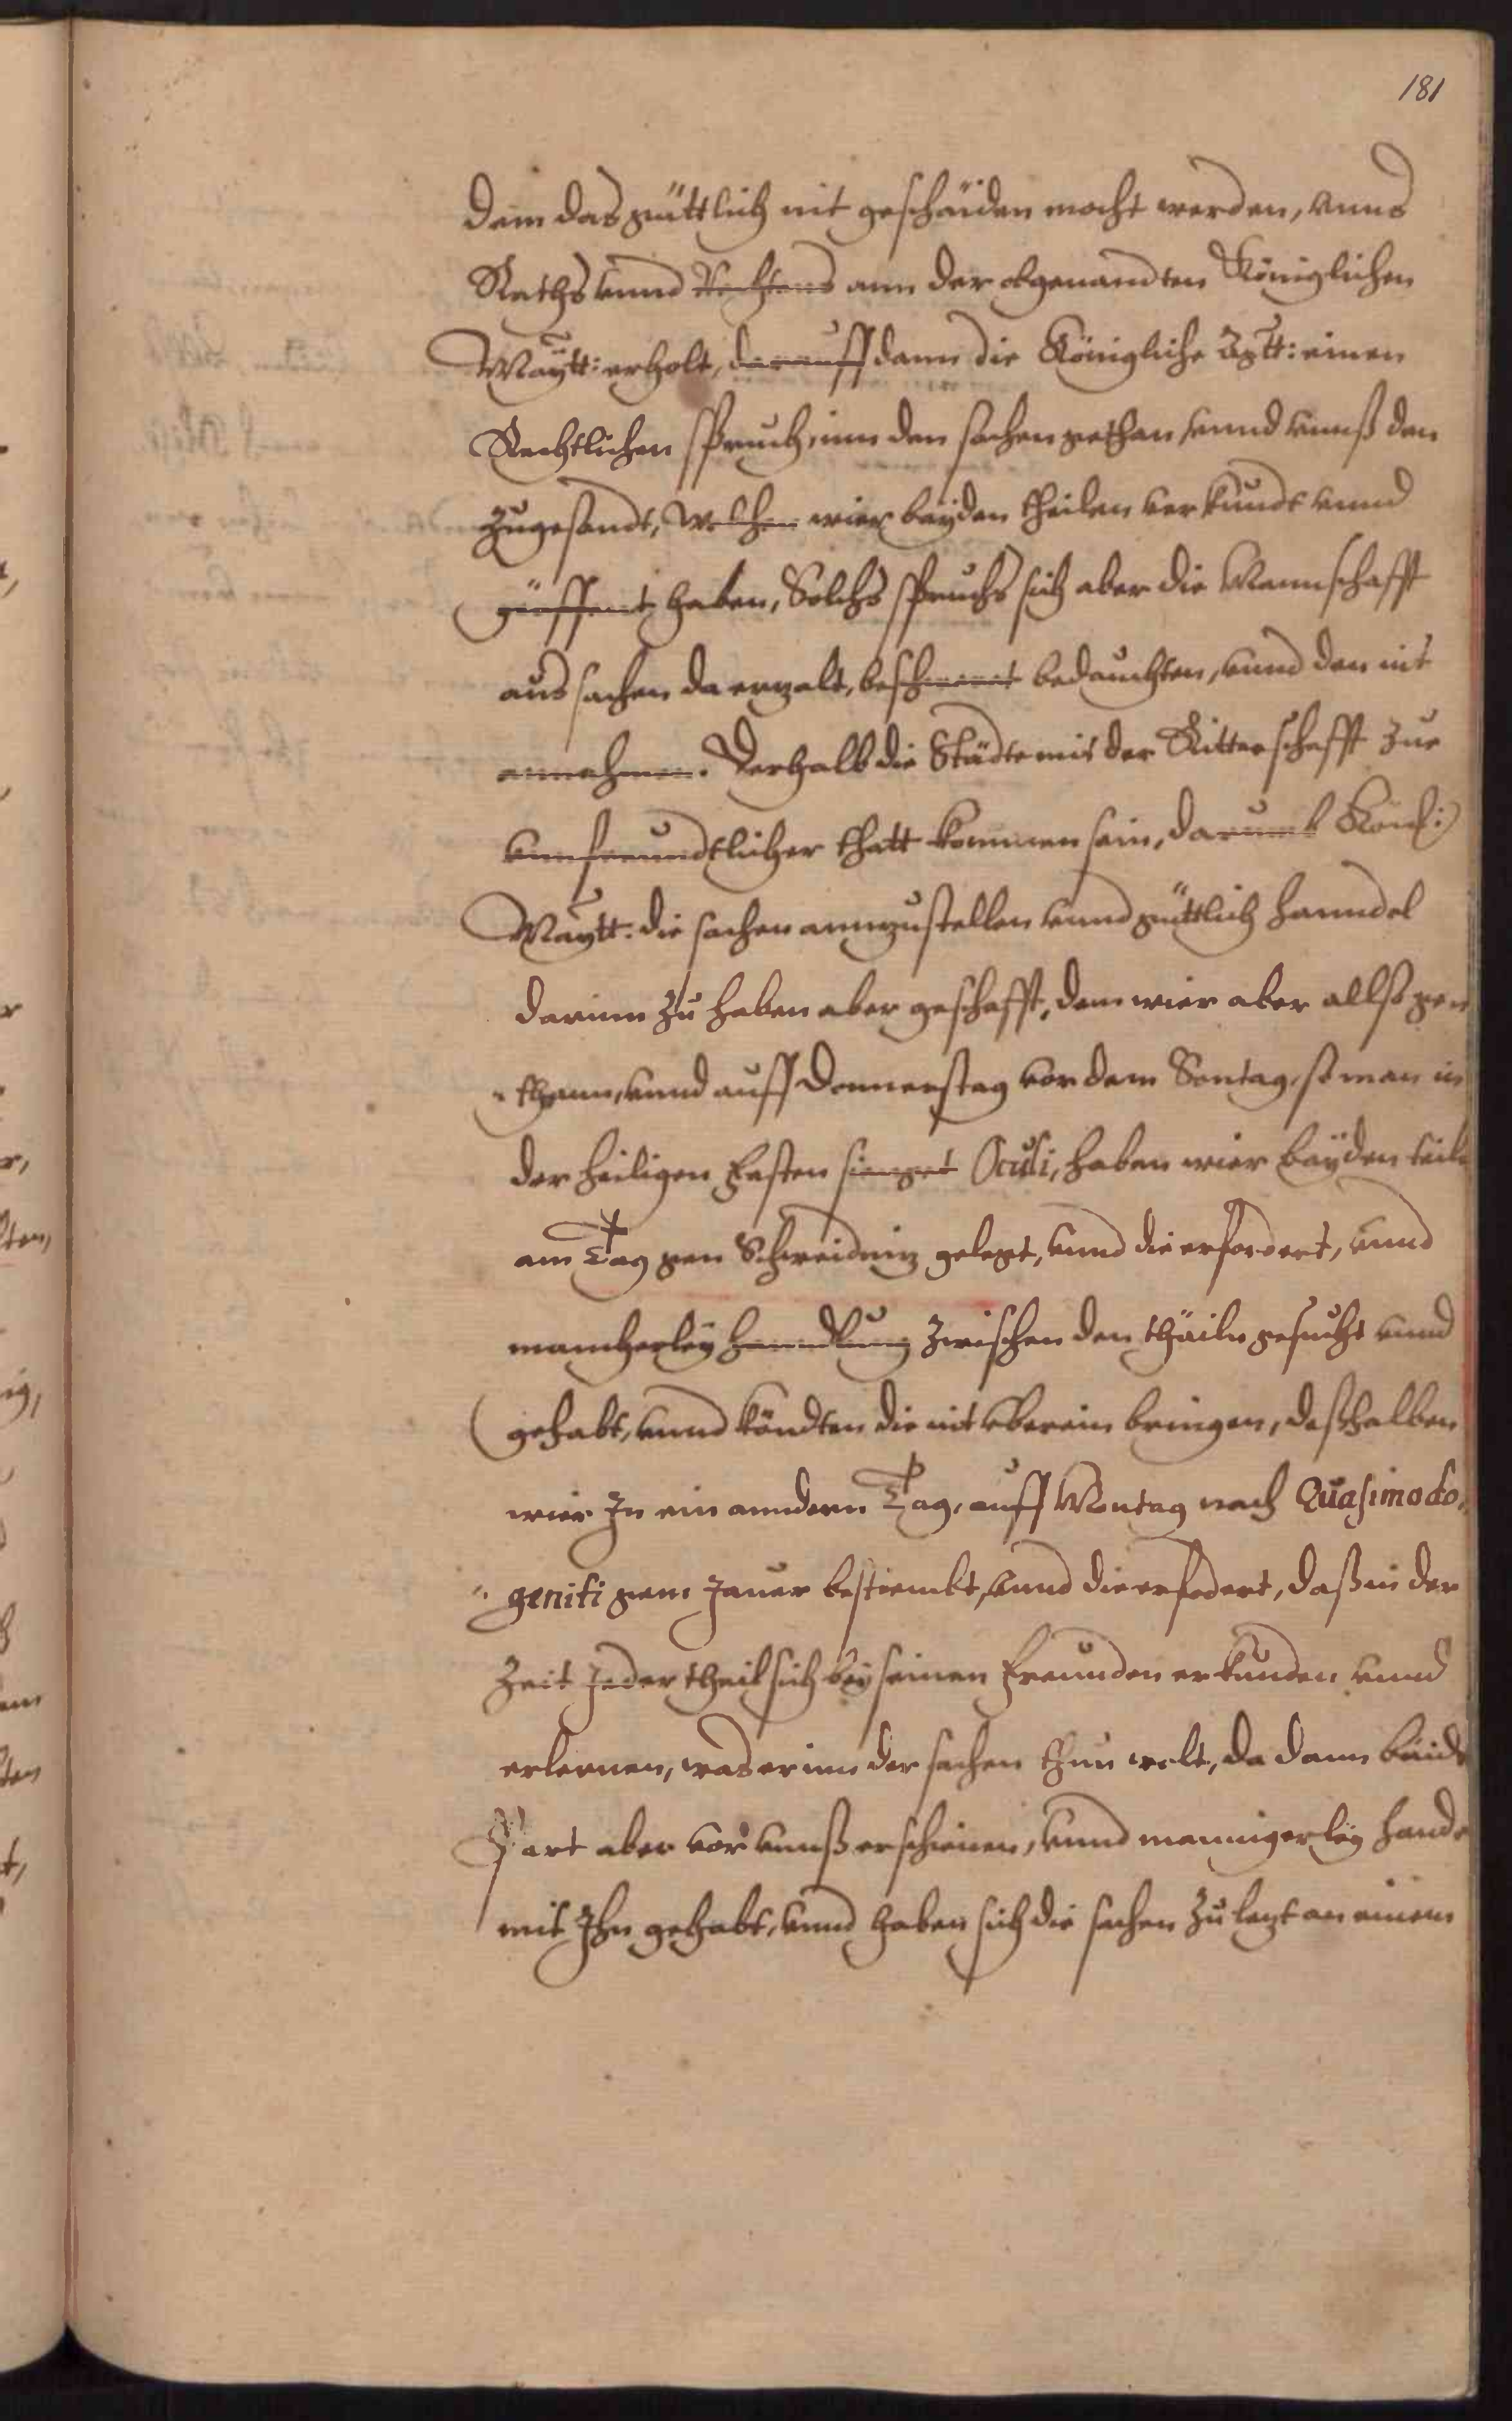 181
dem das güttlich nit geschäiden mocht werden, vnns
Raths vnnd Rechtens ann der obgenandten Königlichen
Maÿtt: erholt, darauff dann die Königliche Mtt: einen
Rechtlichen spruch, inn den sachen gethan, vnnd vnnß den
zugesandt, Welchen wier baÿden theilen verkundt vnnd
geöffent haben, Solchs spruchs sich aber die Mannschafft
aus sachen da erzalt, beschwert bedauchten, vnnd den nit
annahmen. Derhalb die Städte mit der Ritterschafft zue
vnnfreundtlicher thatt kommen sein, darumb Könl:
Maÿtt: die sachen annzustellen vnnd güttlich hanndel
darinn zu haben aber geschafft, dem wier aber allß ge„
„thann, vnnd auff Donnerstag vor dem Sontag, so man in
der heiligen Fasten singet Oculi, haben wier baÿden teiln
am Tag gen Schweidniz gelegt, vnnd die erfordert, vnnd
mancherleÿ hanndlung zwischen den thäiln gesucht vnnd
gehabt, vnnd köndten die nit vberein bringen, deßhalben
wier In ein anndern Tag, auff Montag nach Quasimodo„
„geniti gem Jauer bestiembt, vnnd die erfodert, daß in der
Zeit Jeder theil sich beÿ seinen Freunden erkunden vnnd
erlernen, was er inn der sachen thun wolt, da dann baide
Part aber vor vnnß erschienen, vnnd mannigerleÿ hande
mit Ihn gehabt, vnnd haben sich die sachen zu lezt an einem